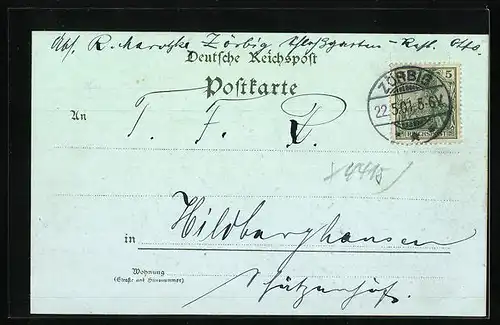 Abs. R. Marotzke Zörbig Schloßgarten-Rest. Otto.
Deutsche Reichspost
Postkarte
ZÖRBIG
22.5.01. 5-6N.
5
REICHSPOST
An T. F. P.
in Hildburghausen
Wohnung
(Straße und Hausnummer)
Schützenhof.